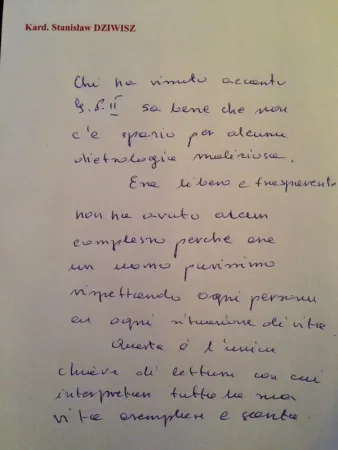 Kard. Stanisław DZIWISZ
Chi ha vissuto accanto
G.P.II sa bene che non
c'è spazio per alcuna
dietrologia maliziosa.
Era libero e trasparente
non ha avuto alcun
complesso perchè era
un uomo purissimo
rispettando ogni persona
in ogni situazione di vita.
Questa è l'unica
chiave di lettura con cui
interpretare tutta la sua
vita esemplare e santa.